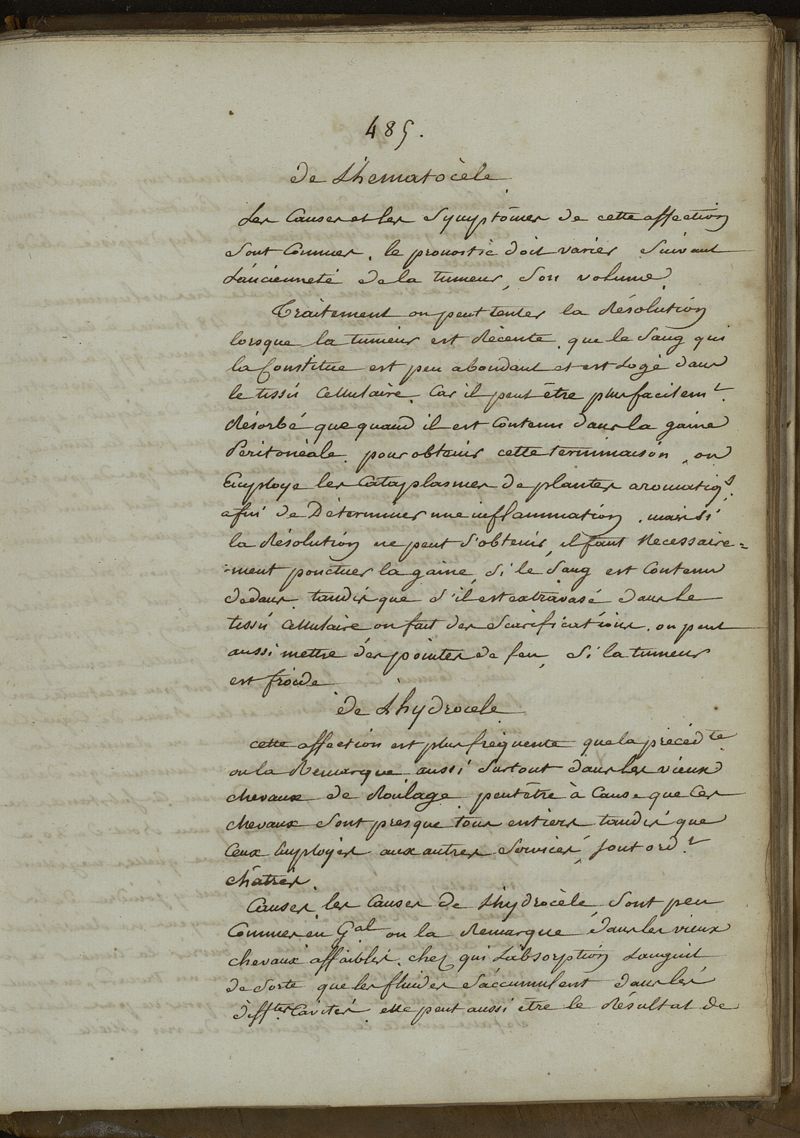 485.
de l'hematocèle
Les Causes et les Symptômes de cette affection
sont Connues, le pronostic doit varier Suivant
L'ancienneté de la tumeur, Son volume.
Traitement on peut tenter la Résolution
lorsque la tumeur est Récente, que le Sang qui
la Constitue est peu abondant et est Logé dans
le tissu Cellulaire. Car il peut être plus facilemt.
Résorbé que quand il est Contenu dans la gaine
Péritonéale. pour obtenir cette terminaison, on
Employe les Cataplasmes de plantes aromatiqs.
afin de Déterminer une inflammation. mais si
la Résolution ne peut s'obtenir, il faut Necessaire=
=ment ponctuer la gaine, Si le Sang est Contenu
dedans. tandis que S'il est extravasé dans le
tissu Cellulaire on fait des Scarifications. on peut
aussi mettre des pointes de feu, Si la tumeur
est froide
de L'hydrocele
cette affection est plus fréquente que la précédte
on la Remarque aussi Surtout dans les vieux
chevaux de Roulage, peut etre à Cause que Ces
chevaux Sont presque tous entiers tandis que
Ceux Employés aux autres Services, sont ordt
châtrés.
Causes, les Causes de L'hydrocèle, Sont peu
Connues en Gal on la Remarque dans les vieux
chevaux affaiblis, chez qui L'absorption Languit
de Sorte que les fluides S'accumulent dans les
difftes Cavités. elle peut aussi être le Résultat de